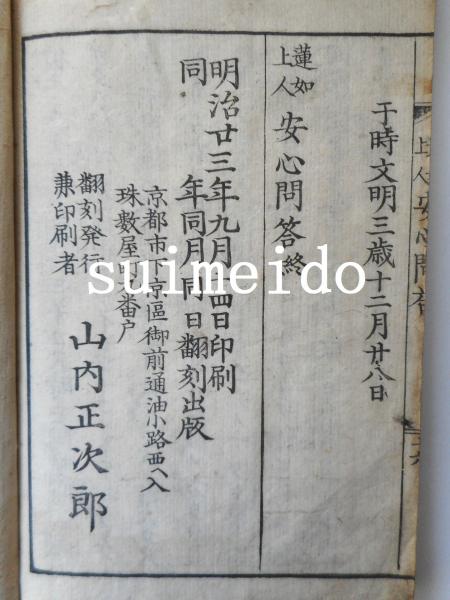 于時文明三歳十二月廿八日
蓮如上人 安心問答終
明治廿三年九月 四日印刷
同 年同月同日翻刻出版
京都市下京區御前通油小路西ヘ入
珠數屋町 番戸
翻刻発行
兼印刷者
山内正次郎
上人安心問答
suimeido